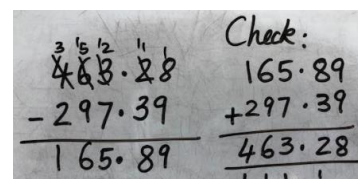 3 15 12 11 1
463.28
-297.39
165.89
Check:
165.89
+297.39
463.28